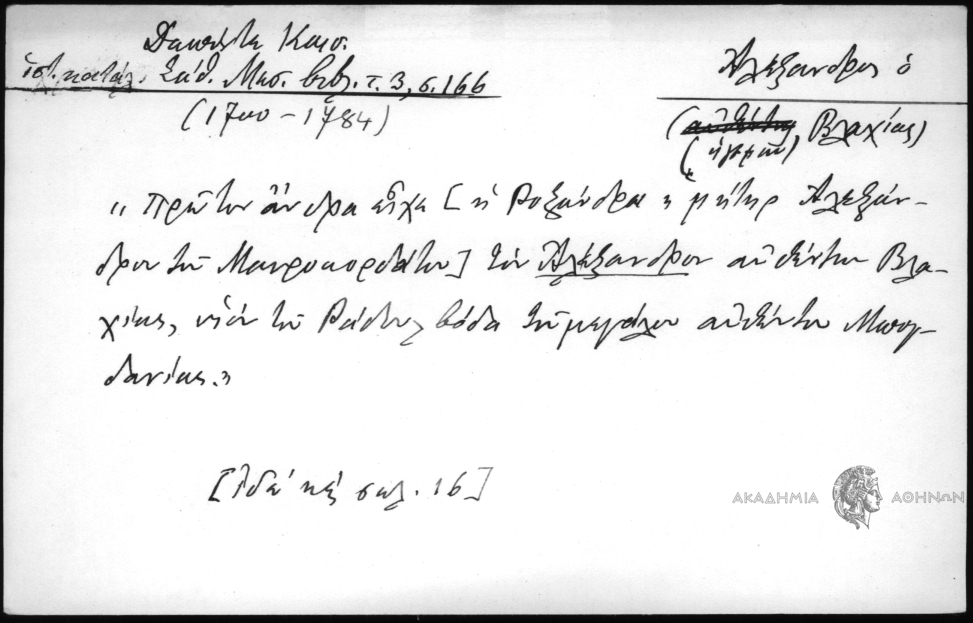 Δαπόντε Καισ.
ἱστ. κατάλ. Σάθ. Μεσ. βιβ. τ. 3, σ. 166
(1700 - 1784)
Ἀλέξανδρος ὁ
(αὐθέντης Βλαχίας)
(ἡγεμὼν)
"πρῶτον ἄνδρα εἶχε [ἡ Ρωξάνδρα ἡ μήτηρ Ἀλεξάν-
δρου τοῦ Μαυροκορδάτου] τὸν Ἀλέξανδρον αὐθέντην Βλα-
χίας, υἱὸν τοῦ Ράδουλ βόδα τοῦ μεγάλου αὐθέντου Μπογ-
δανίας."
[ἰδὲ καὶ σελ. 16]
ΑΚΑΔΗΜΙΑ ΑΘΗΝΩΝ